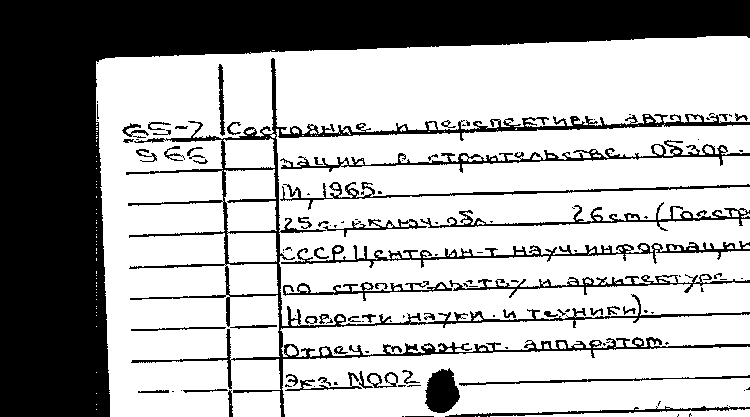 65-7 Состояние и перспективы автомати
966 зации в строительстве. Обзор.
М, 1965.
25 с., включ. обл. 26 см. (Госстр
СССР. Центр. ин-т науч. информации
по строительству и архитектуре.
Новости науки и техники).
Отпеч. множит. аппаратом.
Экз. N002